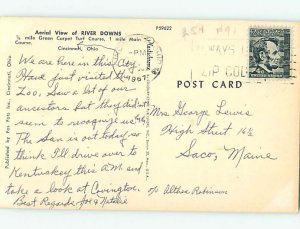 Aerial View of RIVER DOWNS
⅞ mile Green Carpet Turf Course, 1 mile Main
Course.
Cincinnati, Ohio
P59822
PM
1967
ALWAYS
ZIP COD
POST CARD
We are here in this City.
Have just visited the
Zoo, saw a lot of our
ancestors but they didn't
seem to recognize us.
The Sun is out today so
think I'll drive over to
Kentuckey this AM and
take a look at Covington.
Best Regards Joe & Natalie
Mrs George Lewis
High Street 16½
Saco, Maine
c/o Althea Robinson
Published by Pan Pots Inc., Cincinnati, Ohio